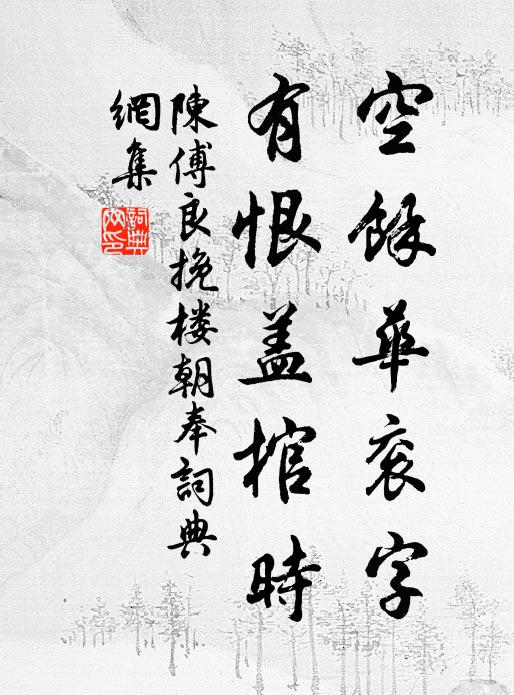 空餘華衮字
有恨盖棺時
陳傅良挽楼朝奉詞典
網集
詞典網印